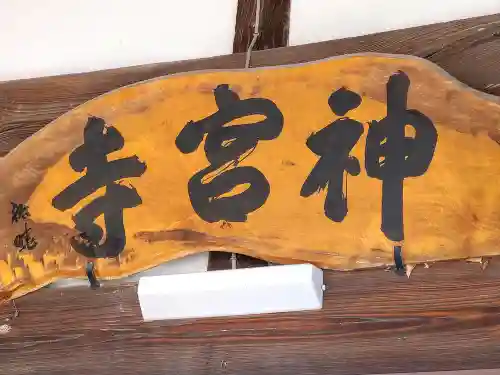 神宮寺